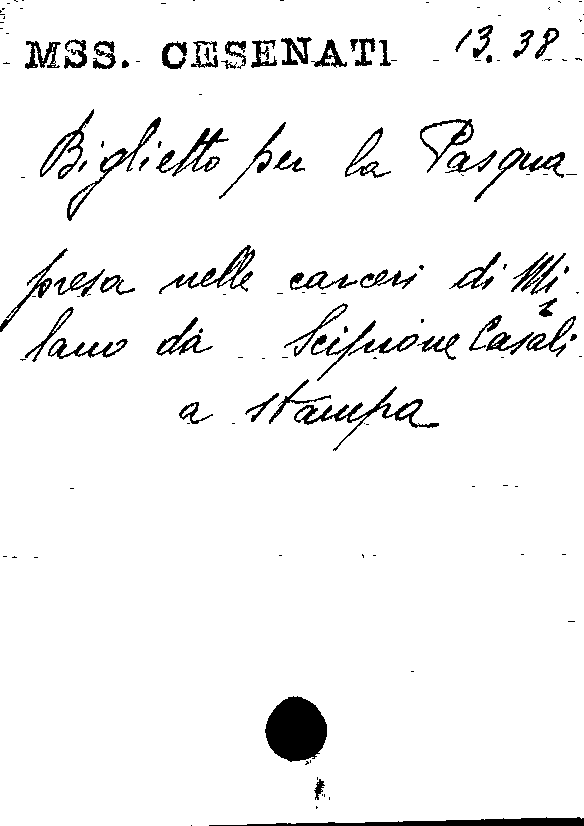 MSS. CESENATI 13.38
Biglietto per la Pasqua
presa nelle carceri di Mi
lano da Scipione Casali
a stampa